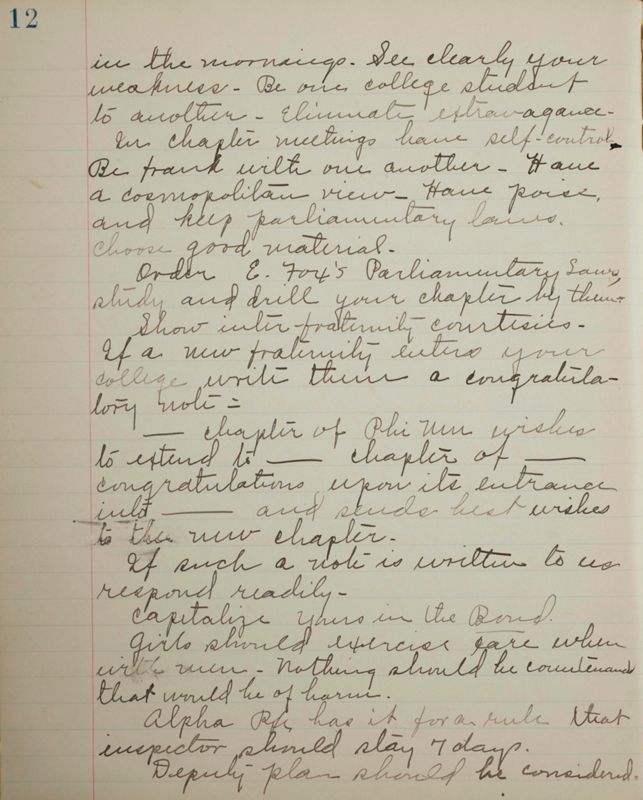 12
in the mornings. See clearly your
weakness - Be one college student
to another - Eliminate extravagance -
In chapter meetings have self-control.
Be frank with one another - Have
a cosmopolitan view - Have poise,
and keep parliamentary laws.
Choose good material -
Order E. Fox's Parliamentary Laws,
study and drill your chapter by them -
Show inter-fraternity courtesies -
If a new fraternity enters your
college write them a congratula-
tory note =
— chapter of Phi Mu wishes
to extend to — chapter of —
congratulations upon its entrance
into — and sends best wishes
to the new chapter.
If such a note is written to us
respond readily -
Capitalize yours in the Bond.
Girls should exercise care when
with men - Nothing should be
that would be of harm.
Alpha Phi has it for a rule that
inspector should stay 7 days.
Deputy plan should be considered.